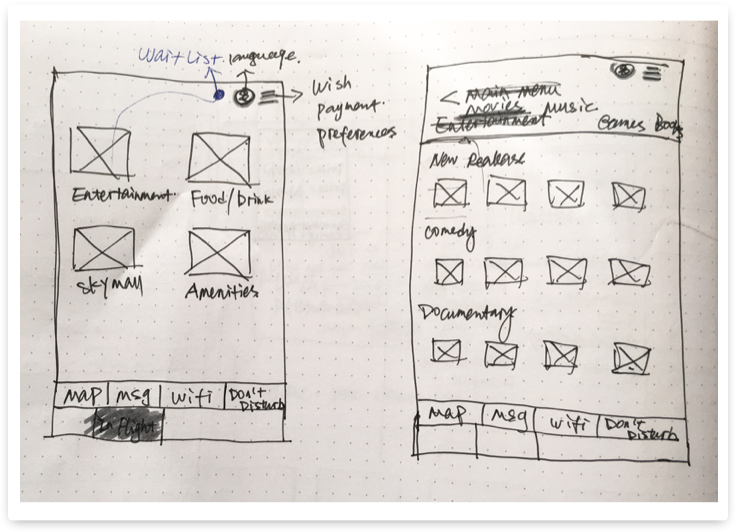 Wait List. language.
Wish
payment.
preferences
Entertainment. Food/Drink
Skymall Amenities
map msg wifi Don't
Disturb
In flight
< Main menu
movies music
Entertainment Games Books
New Realease
comedy
Documentary
map msg wifi Don't
Disturb